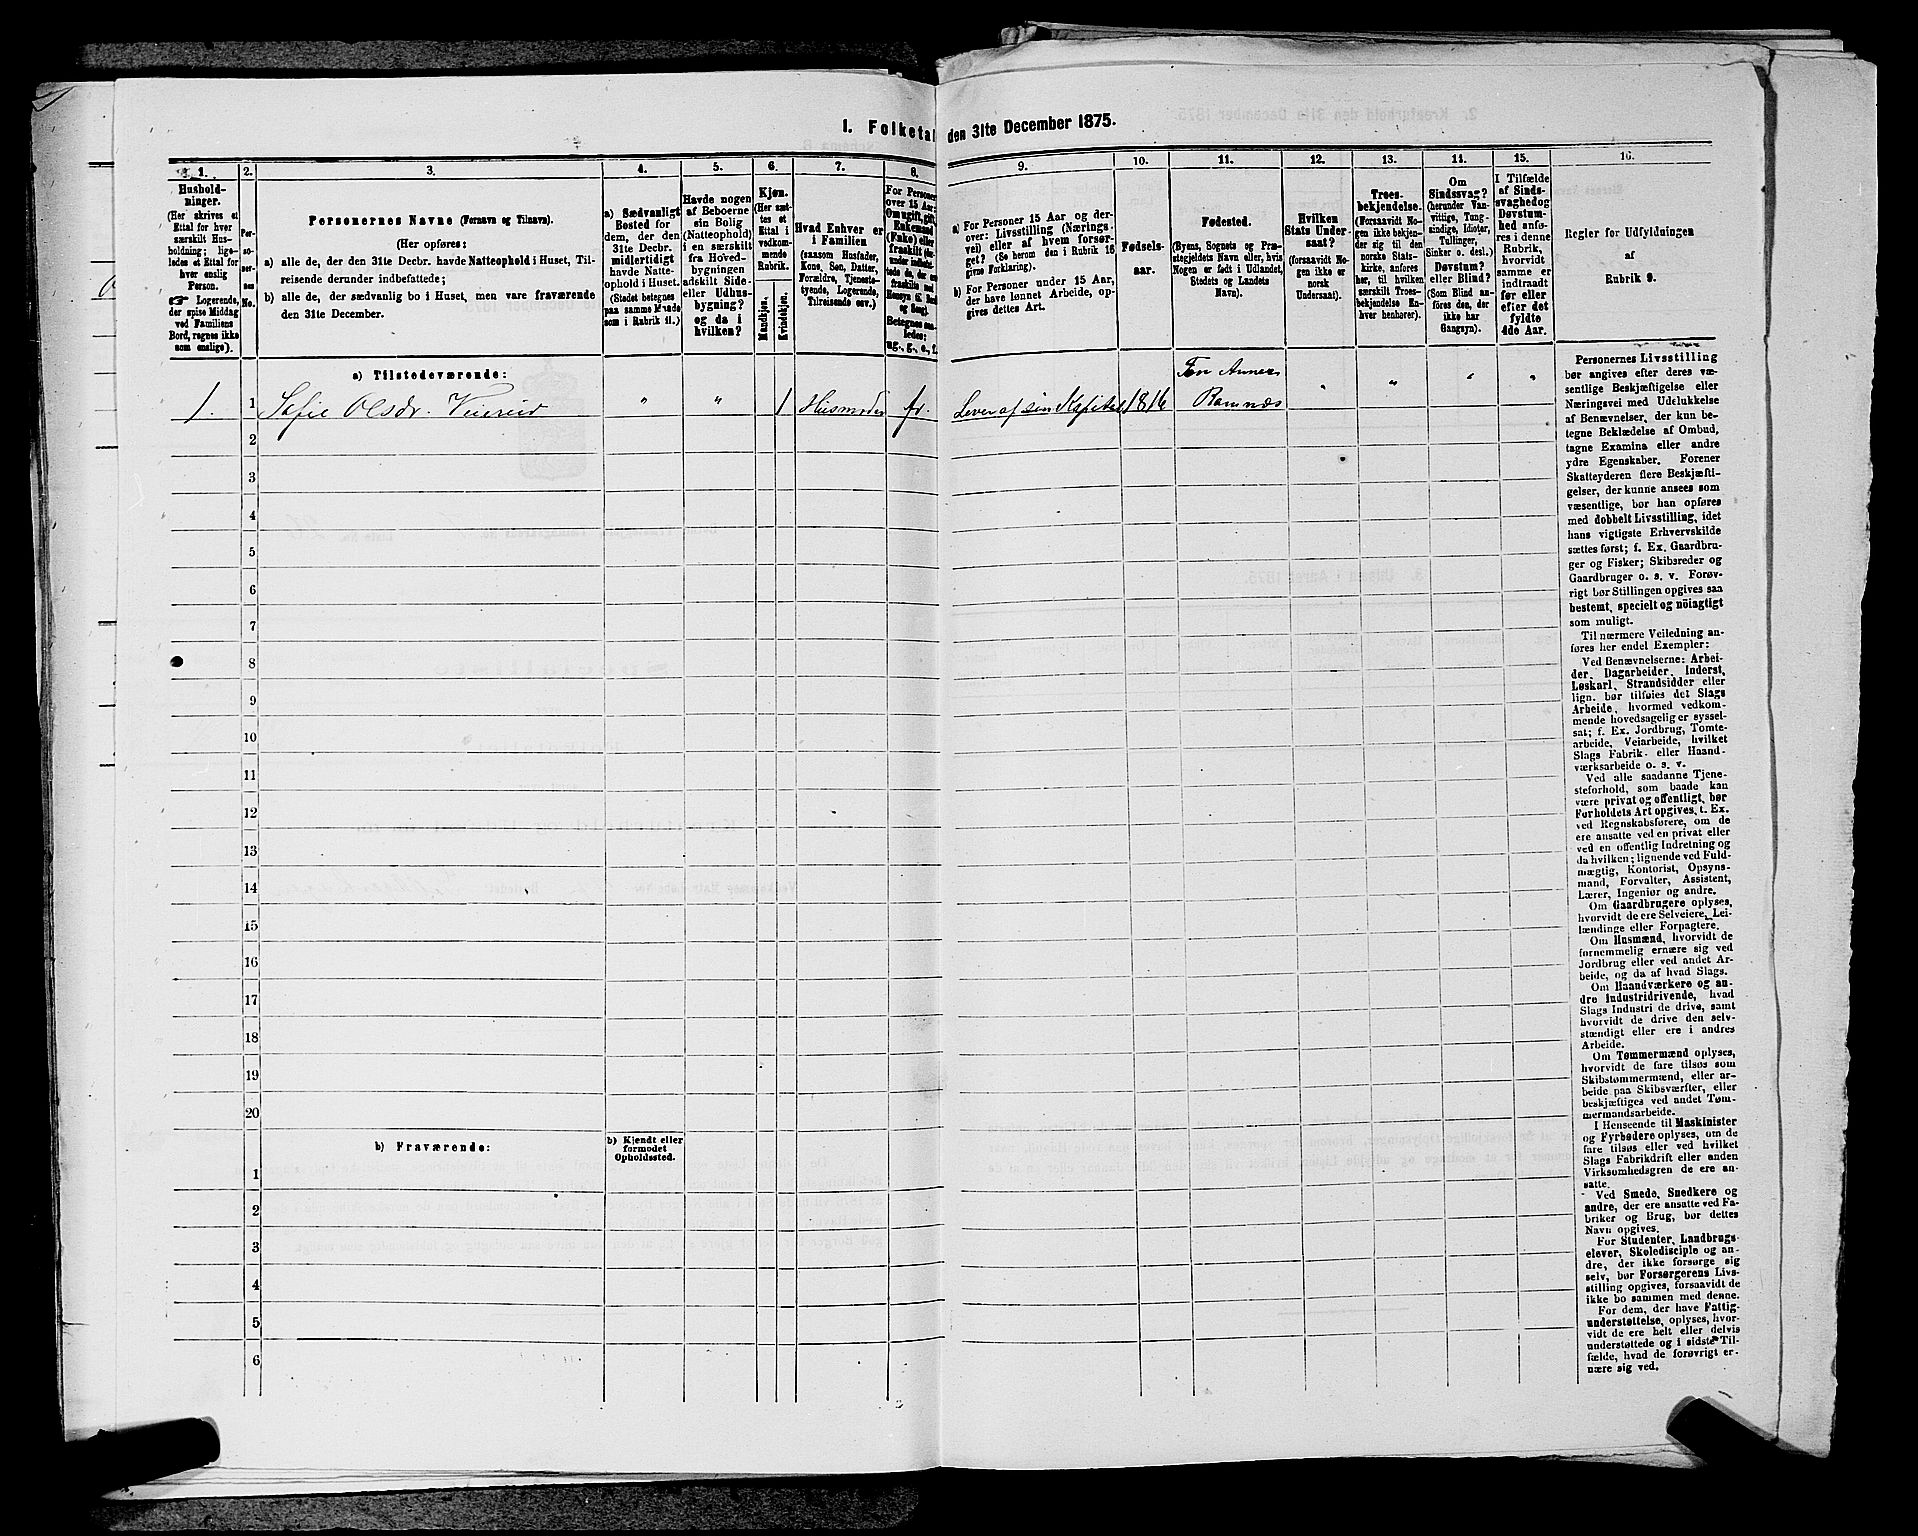 I. Folketal den 31te December 1875.
1. 2. 3. 4. 5. 6. 7. 8. 9. 10. 11. 12. 13. 14. 15. 16.
Hushold-
ninger.
(Her skrives et
Ettal for hver
særskilt Hus-
holdning; lige-
ledes et Ettal for
hver enslig
Person.
☞ Logerende,
der spise Middag
ved Familiens
Bord, regnes ikke
som enslige).
Per-
so-
ner-
nes
No.
Personernes Navne (Fornavn og Tilnavn).
(Her opføres:
a) alle de, der den 31te Decbr. havde Natteophold i Huset, Til-
reisende derunder indbefattede;
b) alle de, der sædvanlig bo i Huset, men vare fraværende
den 31te December.
a) Sædvanligt
Bosted for
dem, der den
31te Decbr.
midlertidigt
havde Natte-
ophold i Huset.
(Stedet betegnes
paa samme Maade
som i Rubrik 11.)
Havde nogen
af Beboerne
sin Bolig
(Natteophold)
i en særskilt
fra Hoved-
bygningen
adskilt Side-
eller Udhus-
bygning?
og da i
hvilken?
Kjøn.
(Her sæt-
tes et
Ettal i
vedkom-
mende
Rubrik.
Mandkjøn.
Kvindekjøn.
Hvad Enhver er
i Familien
(saasom Husfader,
Kone, Søn, Datter,
Forældre, Tjeneste-
tyende, Logerende,
Tilreisende osv.)
For Personer
over 15 Aar:
Om ugift, gift,
Enkemand
(Enke) eller
fraskilt
Betegnes saa-
ledes:
ug., g., e., f.
a) For Personer 15 Aar og der-
over: Livsstilling (Nærings-
vei) eller af hvem forsør-
get? (Se herom den i Rubrik 16
givne Forklaring).
b) For Personer under 15 Aar,
der have lønnet Arbeide, op-
gives dettes Art.
Fødsels-
aar.
Fødested.
(Byens, Sognets og Præ-
stegjeldets Navn eller, hvis
Nogen er født i Udlandet,
Stedets og Landets
Navn).
Hvilken
Stats Under-
saat?
(forsaavidt No-
gen ikke er
norsk
Undersaat).
Troes-
bekjendelse.
(Forsaavidt No-
gen ikke bekjen-
der sig til den
norske Stats-
kirke, anføres
her, til hvilken
særskilt Troes-
bekjendelse En-
hver henhører).
Om
Sindssvag?
(herunder Van-
vittige, Tung-
sindige, Idioter,
Tullinger,
Sinker o. desl.)
Døvstum?
eller Blind?
(Som Blind an-
føres den, der
ikke har
Gangsyn).
I Tilfælde
af Sinds-
svaghedog
Døvstum-
hed anfø-
res i denne
Rubrik,
hvorvidt
samme er
indtraadt
før eller
efter det
fyldte
4de Aar.
Regler for Udfyldningen
af
Rubrik 9.
a) Tilstedeværende:
1. 1 Sofie Olsdr. Veiereid " " 1 Husmoder Lever af sin Kapital 1816 Ramnæs " " " "
2
3
4
5
6
7
8
9
10
11
12
13
14
15
16
17
18
19
20
b) Fraværende:
b) Kjendt eller
formodet
Opholdssted.
1
2
3
4
5
6
Personernes Livsstilling
bør angives efter deres væ-
sentlige Beskjæftigelse eller
Næringsvei med Udelukkelse
af Benævnelser, der kun be-
tegne Beklædelse af Ombud,
tagne Examina eller andre
ydre Egenskaber. Forener
Skatteyderen flere Beskjæfti-
gelser, der kunne ansees som
væsentlige, bør han opføres
med dobbelt Livsstilling, idet
hans vigtigste Erhvervskilde
sættes først; f. Ex. Gaardbru-
ger og Fisker; Skibsreder og
Gaardbruger o. s. v. Forøv-
rigt bør Stillingen opgives saa
bestemt, specielt og nöiagtigt
som muligt.
Til nærmere Veiledning an-
føres her endel Exempler:
Ved Benævnelserne: Arbei-
der, Dagarbeider, Inderst,
Løskarl, Strandsidder eller
lign. bør tilføies det Slags
Arbeide, hvormed vedkom-
mende hovedsagelig er syssel-
sat; f. Ex. Jordbrug, Tomte-
arbeide, Veiarbeide, hvilket
Slags Fabrik- eller Haand-
værksarbeide o. s. v.
Ved alle saadanne Tjene-
steforhold, som baade kan
være privat og offentligt, bør
Forholdets Art opgives, t. Ex.
ved Regnskabsførere, om de
ere ansatte ved en privat eller
ved en offentlig Indretning og
da hvilken; lignende ved Fuld-
mægtig, Kontorist, Opsyns-
mand, Forvalter, Assistent,
Lærer, Ingeniør og andre.
Om Gaardbrugere oplyses,
hvorvidt de ere Selveiere, Lei-
lændinge eller Forpagtere.
Om Husmænd, hvorvidt de
fornemmelig ernære sig ved
Jordbrug eller ved andet Ar-
beide, og da af hvad Slags.
Om Haandværkere og an-
dre Industridrivende, hvad
Slags Industri de drive, samt
hvorvidt de drive den selv-
stændigt eller ere i andres
Arbeide.
Om Tømmermænd oplyses,
hvorvidt de fare tilsøs som
Skibstømmermænd, eller ar-
beide paa Skibsværfter, eller
beskjæftiges ved andet Tøm-
mermandsarbeide.
I Henseende til Maskinister
og Fyrbødere oplyses, om de
fare tilsøs eller ved hvilket
Slags Fabrikdrift eller anden
Virksomhedsgren de ere an-
satte.
Ved Smede, Snedkere og
andre, der ere ansatte ved Fa-
briker og Brug, bør dettes
Navn opgives.
For Studenter, Landbrugs-
elever, Skoledisciple og an-
dre, der ikke forsørge sig
selv, bør Forsørgerens Livs-
stilling opgives, forsaavidt de
ikke bo sammen med denne.
For dem, der have Fattig-
understøttelse, oplyses, hvor-
vidt de ere helt eller delvis
understøttede og i sidste Til-
fælde, hvad de forøvrigt er-
nære sig ved.